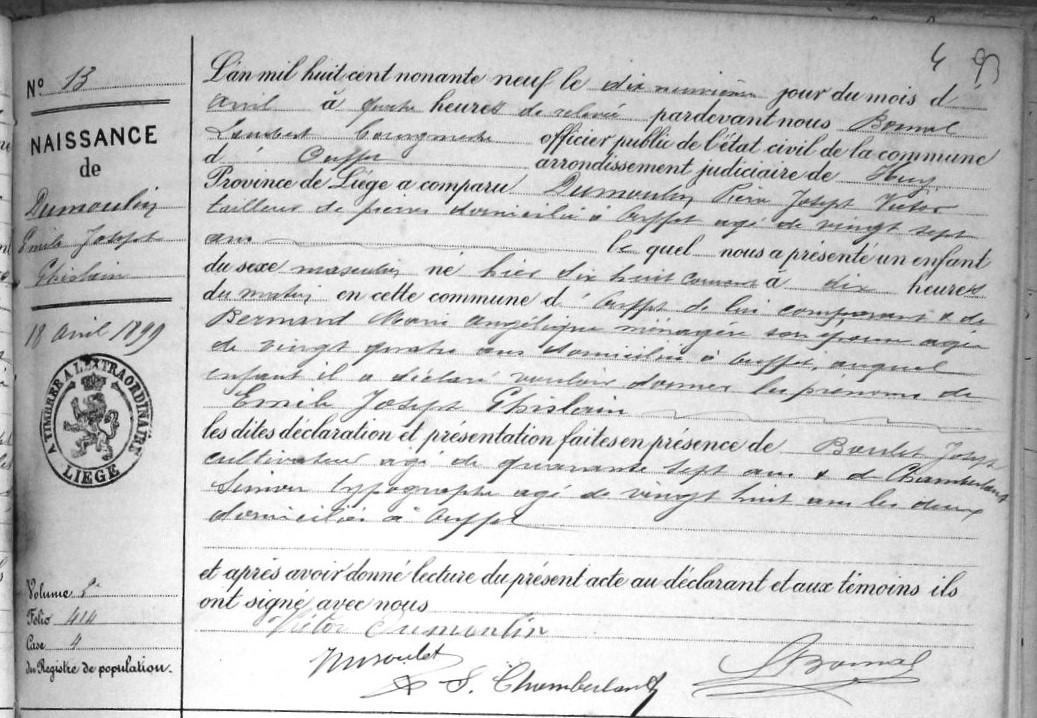 4 93
N° 13
NAISSANCE
de
Dumoulin
Emile Joseph
Ghislain
18 avril 1899
TIMBRE A L'EXTRAORDINAIRE
LIEGE
Volume
Folio 414
Case 4
du Registre de population.
L'an mil huit cent nonante neuf le dix neuvième jour du mois d'
avril à quatre heures de relevée pardevant nous Bomal
Lambert bourgmestre officier public de l'état civil de la commune
d' Ouffet arrondissement judiciaire de Huy
Province de Liége a comparu Dumoulin Pierre Joseph Victor
tailleur de pierres domicilié à Ouffet agé de vingt sept
ans le quel nous a présenté un enfant
du sexe masculin né hier dix huit courant à dix heures
du matin en cette commune d' Ouffet de lui comparant & de
Bernard Marie Angélique ménagère son épouse agée
de vingt quatre ans domiciliée à Ouffet, auquel
enfant il a déclaré vouloir donner les prénoms de
Emile Joseph Ghislain
les dites déclaration et présentation faites en présence de Joseph
cultivateur agé de quarante sept ans & de Chamberland
Simon typographe agé de vingt huit ans les deux
domiciliés à Ouffet
et après avoir donné lecture du présent acte au déclarant et aux témoins ils
ont signé avec nous
Victor Dumoulin
S. Chamberland
LBomal